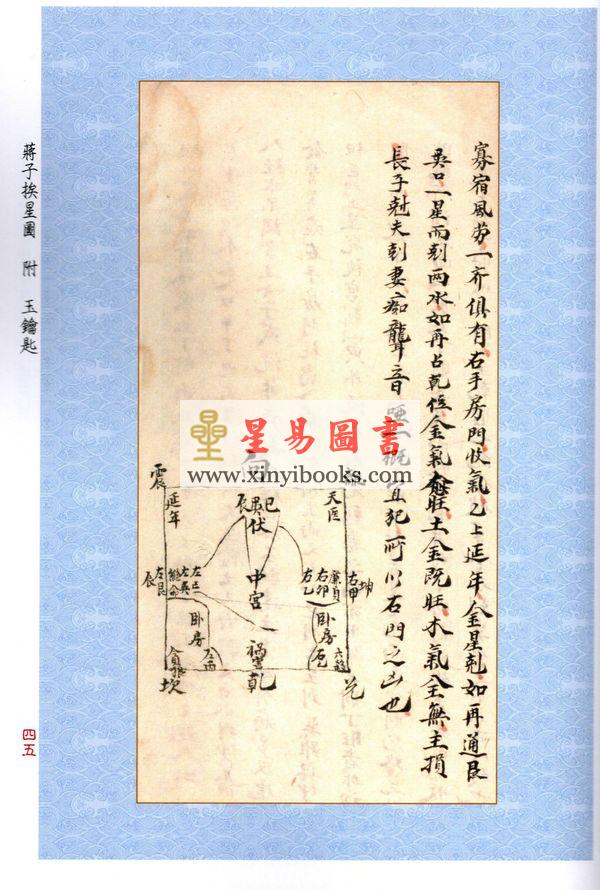 寡宿風勞一齊俱有右手房門收氣乙上延年金星剋如再通艮
吳口一星而剋兩水如再占乾位金氣愈旺土金既旺木氣全無主損
長子尅夫剋妻痴聾音啞一概宜犯所以右門之凶也
星易圖書
www.xinyibooks.com
向
震
延年
巳
辰
巽
伏
天医
中宮
左艮
辰
左巳
左巽
右甲
坤
廉貞
右卯
右乙
臥房
臥房
貪狼
坎
禍
乾
六煞
兌
蔣子挨星圖 附 玉鑰匙
四五